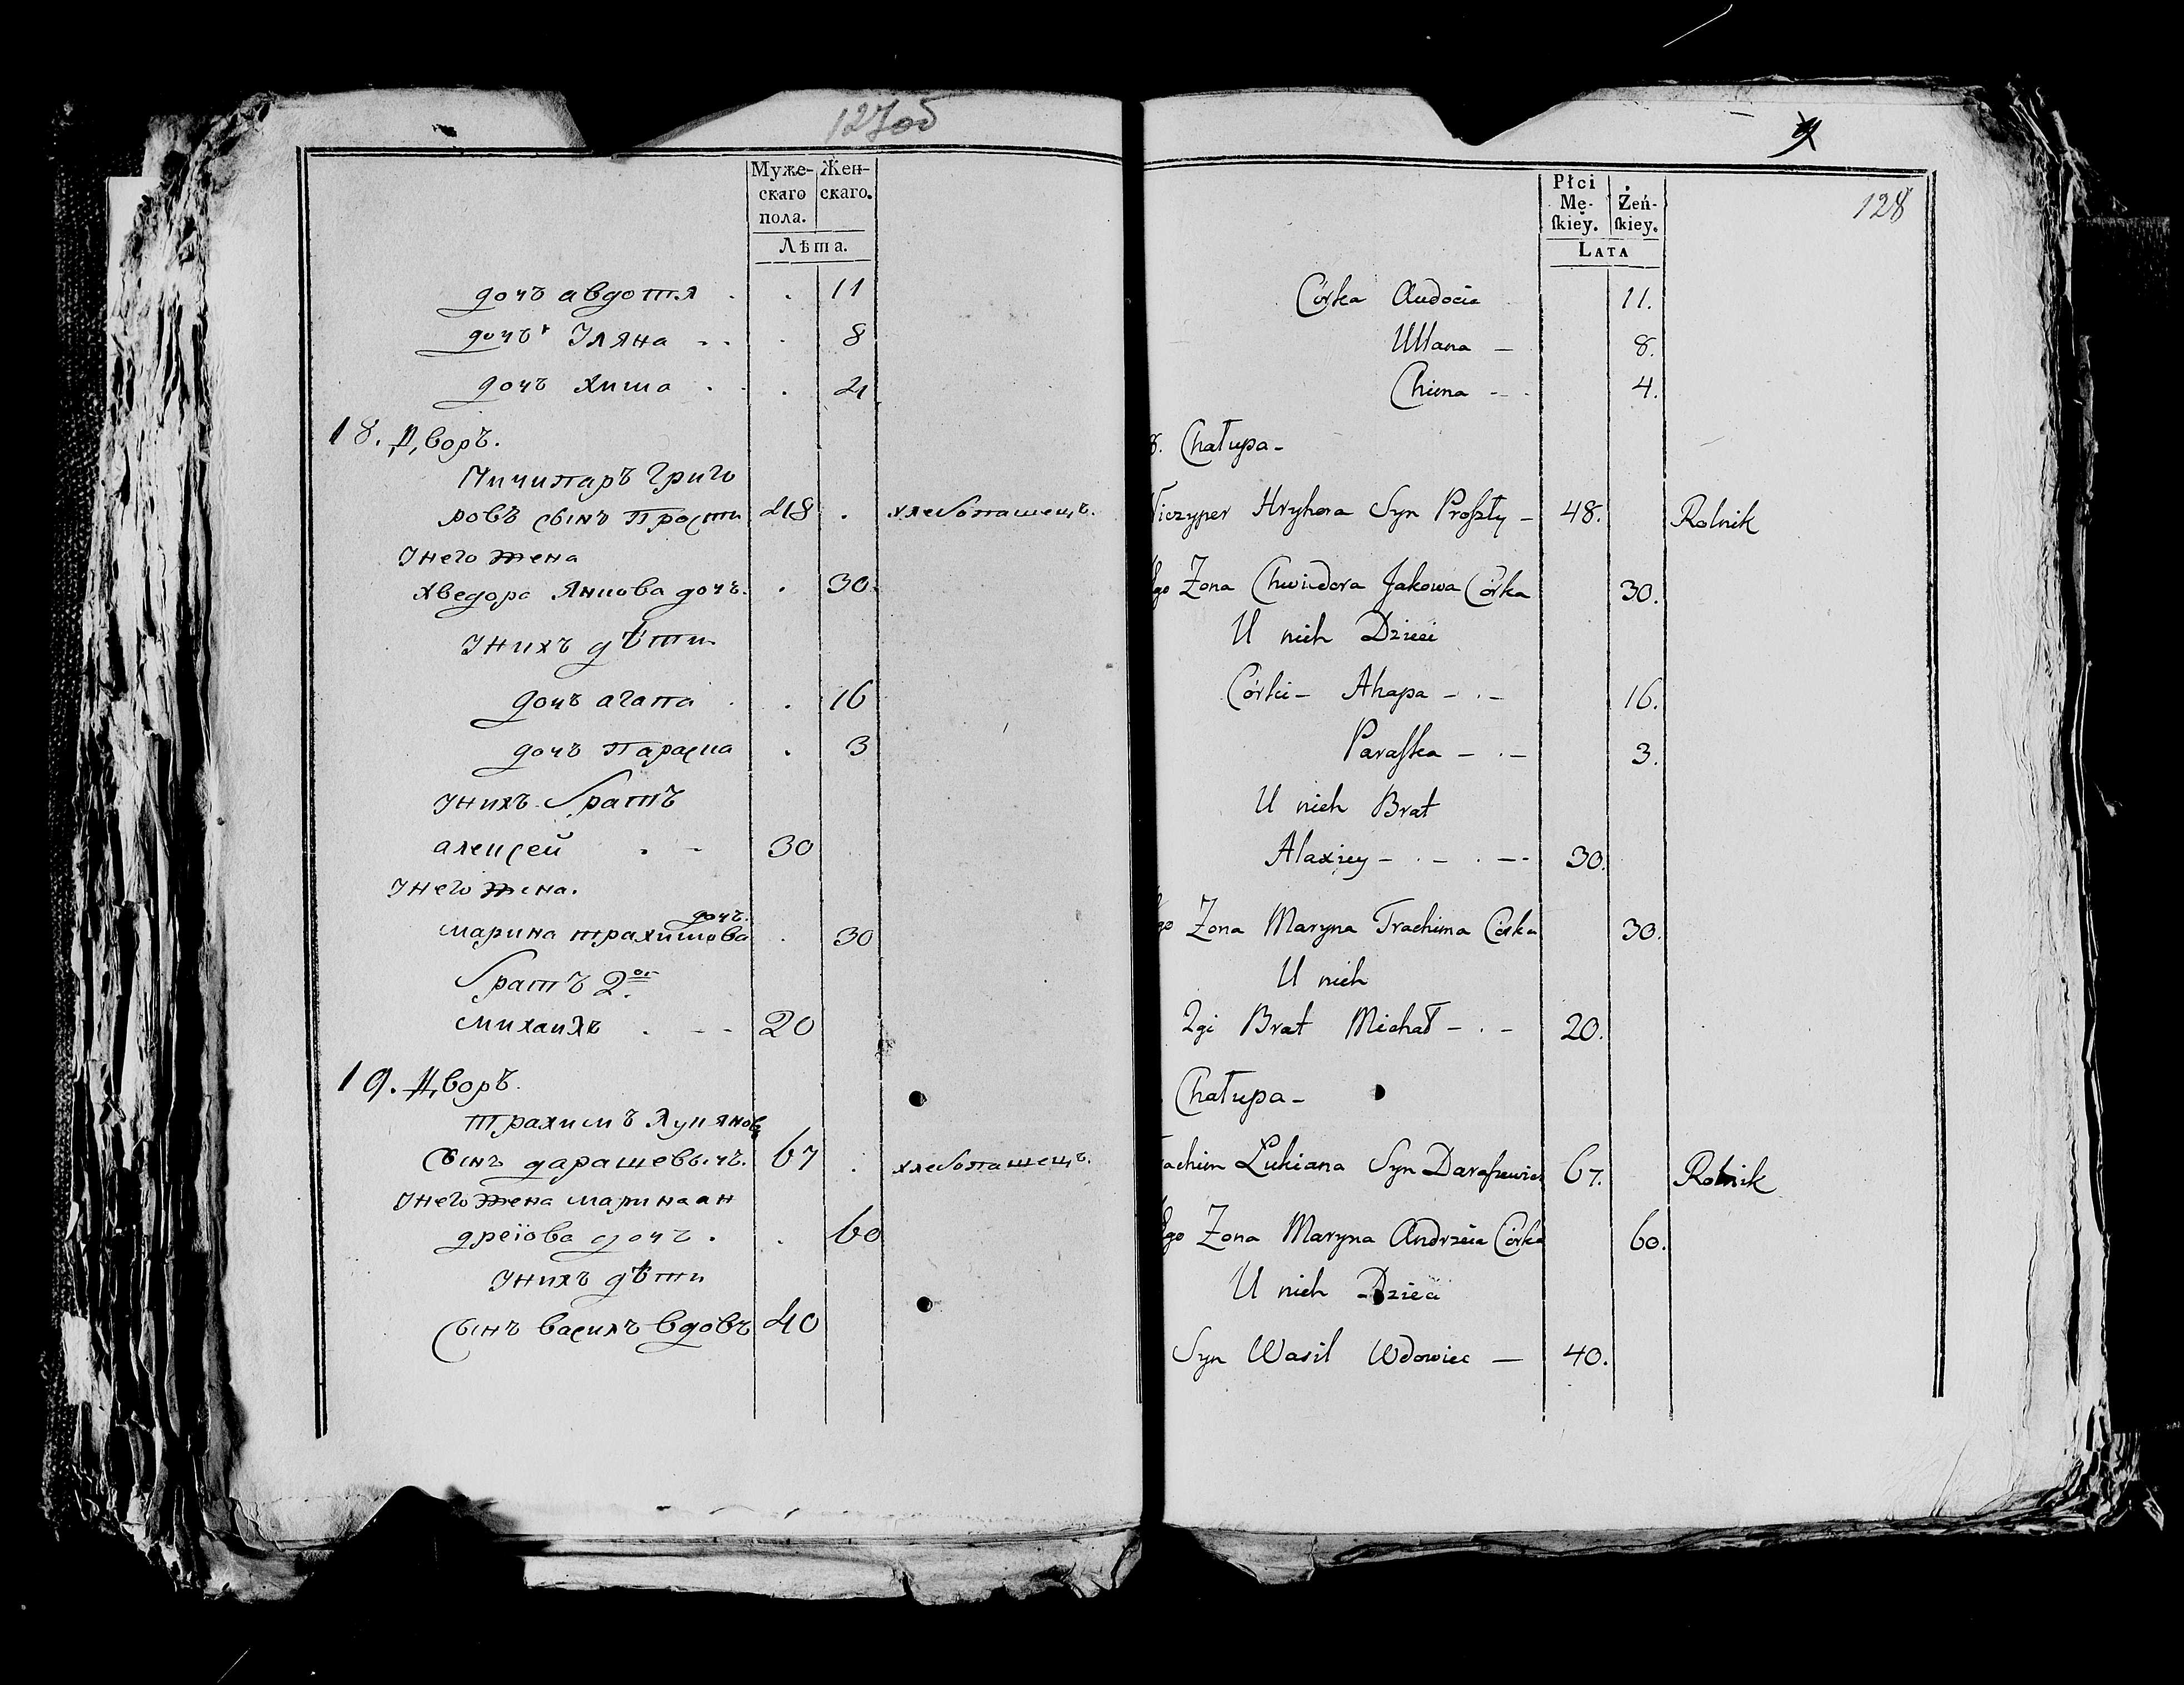 127об
Муже- Жен-
скаго скаго.
пола.
Лѣта.
дочъ авдотя . . 11
дочъ Уляна . . . 8
дочъ Хима . . 4
18. Дворъ.
Ничипаръ Григо
ровъ сынъ Прости 48 . хлебопашецъ.
Унего жена
хведора Якова дочъ. . 30.
Унихъ дѣти
дочъ агапа . . 16
дочъ параска . 3
Унихъ братъ
алексей . - 30
Унего жена.
дочъ.
марина трахимова . 30
братъ 2ой
михаилъ . - - 20
19. Дворъ.
трахимъ Лукяновъ
сынъ дарашевичъ. 67 . хлебопашецъ.
Унего жена марина ан
дреiова дочъ . . 60
Унихъ дѣти
сынъ василъ вдовъ 40
9
128
Płci
Mę- Żeń-
ſkiey. ſkiey.
LATA
Córka Audocia 11.
Ullana - 8.
Chima - - 4.
8. Chałupa -
Niczyper Hryhora Syn Proſzty - 48. Rolnik
Jego Zona Chwiedora Jakowa Córka 30.
U nich Dzieci
Córki - Ahapa - . - 16.
Paraſka - . - 3.
U nich Brat
Alaxiey - . - . - - 30.
Jego Zona Maryna Trachima Córka 30.
U nich
2gi Brat Michał - . - 20.
Chałupa -
Trachim Lukiana Syn Daraſzewicz 67. Rolnik
Jego Zona Maryna Andrzeia Córka 60.
U nich Dzieci
Syn Wasil Wdowiec - 40.